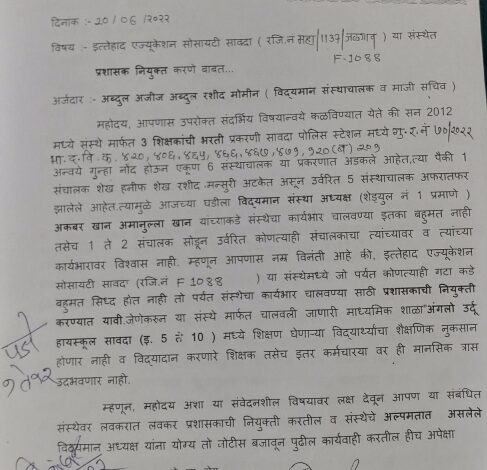 दिनांक :- २०/०६/२०२२
विषय :- इत्तेहाद एज्यूकेशन सोसायटी सावदा ( रजि.नं महा/1137/जळगाव ) या संस्थेत
F-1088
प्रशासक नियुक्त करणे बाबत...
अर्जदार :- अब्दुल अजीज अब्दुल रशीद मोमीन ( विद्यमान संस्थाचालक व माजी सचिव )
महोदय, आपणास उपरोक्त संदर्भिय विषयान्वये कळविण्यात येते की सन 2012
मध्ये संस्थे मार्फत 3 शिक्षकांची भरती प्रकरणी सावदा पोलिस स्टेशन मध्ये गु.र.नं ७०/२०२२
भा.द.वि.क. ४२०, ४०६, ४६५, ४६६, ४६७, ४७१, १२०(ब) २०१
अन्वये गुन्हा नोंद होऊन एकूण 6 संस्थाचालक या प्रकरणात अडकले आहेत.त्या पैकी 1
संचालक शेख हनीफ शेख रशीद मन्सुरी अटकेत असून उर्वरित 5 संस्थाचालक अफरातफर
झालेले आहेत.त्यामुळे आजच्या घडीला विद्यमान संस्था अध्यक्ष (शेड्युल नं 1 प्रमाणे )
अकबर खान अमानुल्ला खान यांच्याकडे संस्थेचा कार्यभार चालवण्या इतका बहुमत नाही
तसेच 1 ते 2 संचालक सोडून उर्वरित कोणत्याही संचालकाचा त्यांच्यावर व त्यांच्या
कार्यभारावर विश्वास नाही. म्हणून आपणास नम्र विनंती आहे की, इत्तेहाद एज्यूकेशन
सोसायटी सावदा (रजि.नं F 1088 ) या संस्थेमध्ये जो पर्यंत कोणत्याही गटा कडे
बहुमत सिध्द होत नाही तो पर्यंत संस्थेचा कार्यभार चालवण्या साठी प्रशासकाची नियुक्ती
करण्यात यावी.जेणेकरुन या संस्थे मार्फत चालवली जाणारी माध्यमिक शाळा"अंगलो उर्दू
हायस्कूल सावदा (इ. 5 तं 10 ) मध्ये शिक्षण घेणाऱ्या विद्यार्थ्यांचा शैक्षणिक नुकसान
होणार नाही व विद्यादान करणारे शिक्षक तसेच इतर कर्मचारया वर ही मानसिक त्रास
उदभवणार नाही.
म्हणून, महोदय अशा या संवेदनशील विषयावर लक्ष देवून आपण या संबंधित
संस्थेवर लवकरात लवकर प्रशासकाची नियुक्ती करतील व संस्थेचे अल्पमतात असलेले
विद्यमान अध्यक्ष यांना योग्य तो नोटीस बजावून पुढील कार्यवाही करतील हीच अपेक्षा